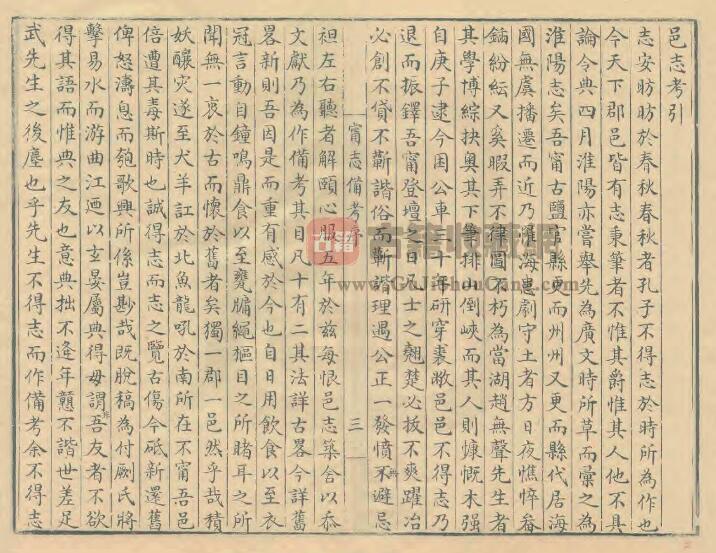 邑志考引
志安昉昉於春秋春秋者孔子不得志於時所為作也
今天下郡邑皆有志秉筆者不惟其爵惟其人他不具
論今典四月淮陽亦嘗舉先為廣文時所草而彙之為
淮陽志矣吾甯古鹽官縣更而州州又更而縣代居海
國無虞播遷而近乃濱海患劇守土者方日夜憔悴畚
鍤紛紜又奚暇弄不律圖不朽為當湖趙無聲先生者
其學博綜抉奧其下筆排山倒峽而其人則慷慨木強
自庚子逮今困公車二十年研穿裘敝邑邑不得志乃
退而振鐸吾甯登壇之日凡士之翹楚必拔不爽躍冶
必創不貸不蘄諧俗而蘄諧理遇公正一發憤不避忌
甯志備考序
三
袒左右聽者解頤心服五年於茲每恨邑志築舍以忝
文獻乃為作備考其目凡十有二其法詳古畧今詳舊
畧新則吾因是而重有感於今也自日用飲食以至衣
冠言動自鐘鳴鼎食以至甕牖繩樞目之所睹耳之所
聞無一衷於古而懷於舊者矣獨一郡一邑然乎哉積
妖釀灾遂至犬羊訌於北魚龍吼於南所在不甯吾邑
倍遭其毒斯時也誠得志而志之覽古傷今砥新還舊
俾怒濤息而匏歌興所係豈尠哉既脫稿為付厥氏將
擊易水而游曲江迺以玄晏屬典得毋謂吾友者不欲
得其語而惟典之友也意典拙不逢年戇不諧世差足
武先生之後塵也乎先生不得志而作備考余不得志
古籍收藏網
www.GuJiShouCang.com